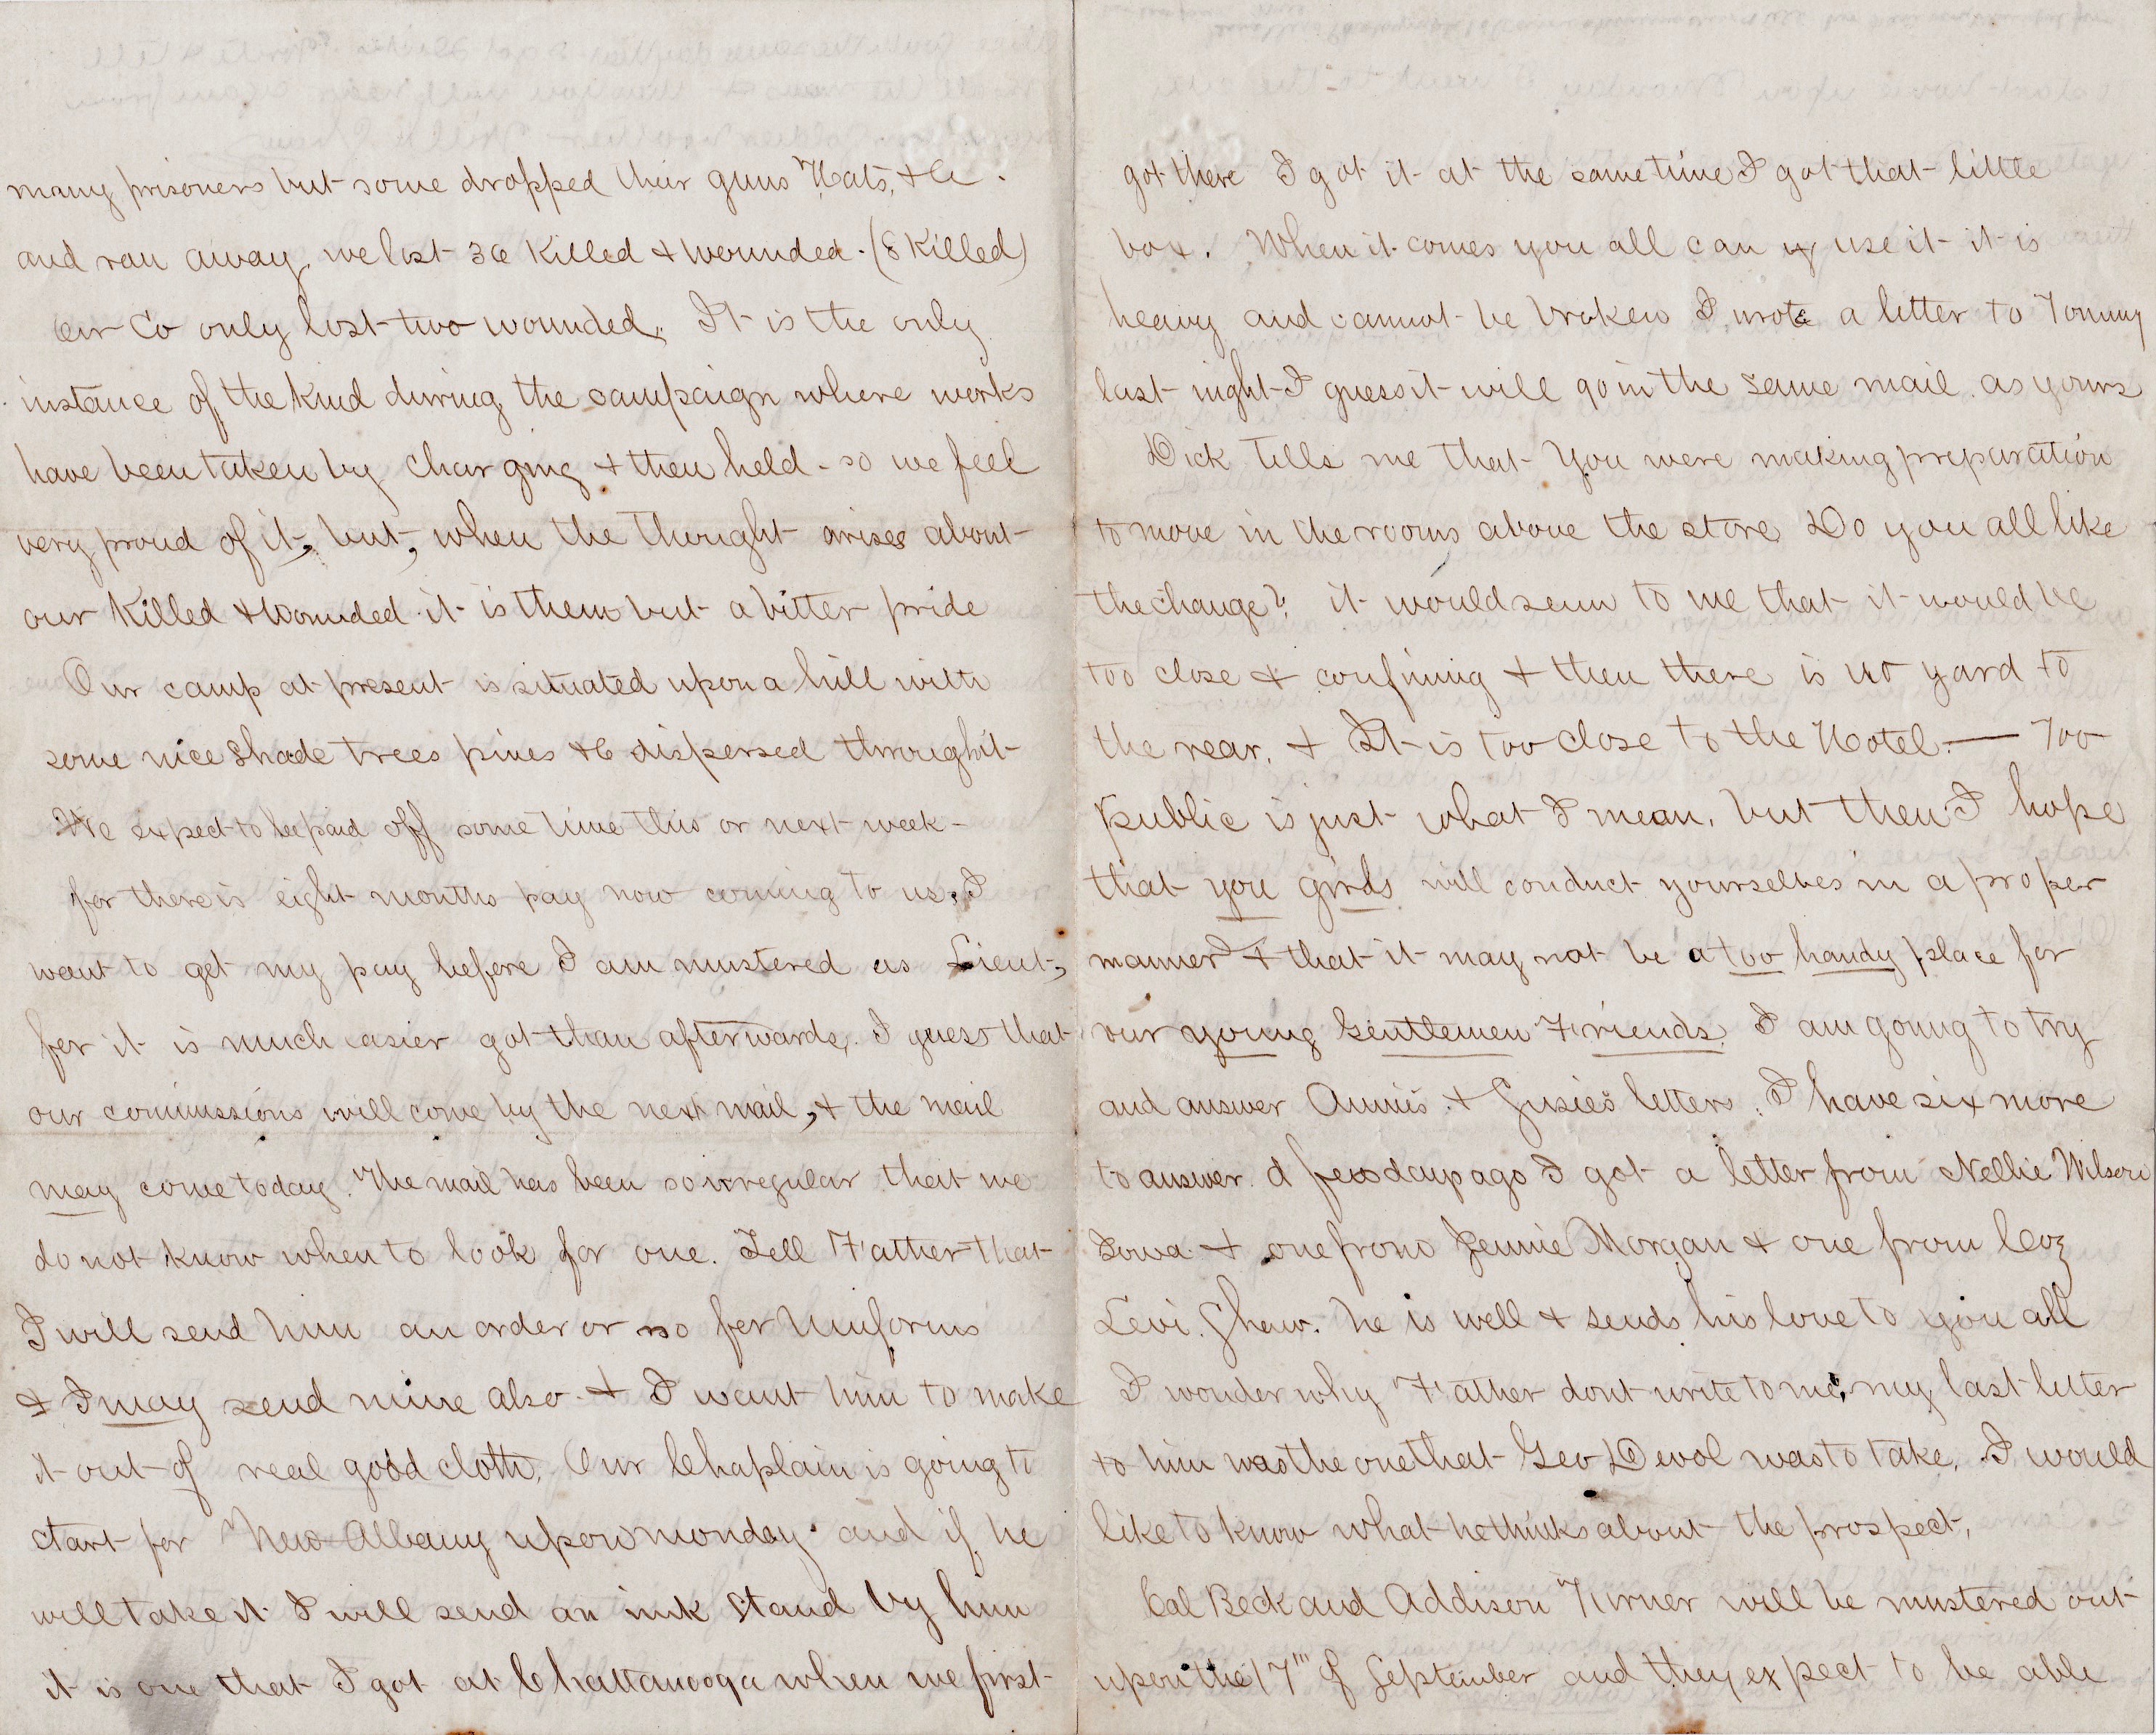 many prisoners but some dropped their guns Hats, &c.
and ran away, we lost 36 Killed & wounded. (8 Killed)
Our Co only lost two wounded. It is the only
instance of the kind during the campaign where works
have been taken by charging & then held - so we feel
very proud of it, but, when the thought arises about
our Killed & Wounded it is then but a bitter pride
Our camp at present is situated upon a hill with
some nice shade trees pines &c dispersed through it
We expect to be paid off some time this or next week -
for there is eight months pay now coming to us. I
want to get my pay before I am mustered as Lieut,
for it is much easier got than afterwards. I guess that
our commissions will come by the next mail, & the mail
may come today. The mail has been so irregular that we
do not know when to look for one. Tell Father that
I will send him an order or so for Uniforms
& I may send mine also & I want him to make
it out of real good cloth. Our Chaplain is going to
start for New Albany upon monday and if he
will take it I will send an ink stand by him
it is one that I got at Chattanooga when we first
got there I got it at the same time I got that little
box. When it comes you all can use it it is
heavy and cannot be broken I wrote a letter to Tommy
last night I guess it will go in the same mail as yours
Dick tells me that you were making preparation
to move in the rooms above the store Do you all like
the change? it would seem to me that it would be
too close & confining & then there is no yard to
the rear. & It is too close to the Hotel. — Too
public is just what I mean, but then I hope
that you girls will conduct yourselves in a proper
manner & that it may not be a too handy place for
our young Gentlemen Friends. I am going to try
and answer Annie's & Susie's letters. I have six more
to answer. A few days ago I got a letter from Nellie Wilson
Iowa & one from Jennie Morgan & one from Coz
Levi Shaw. he is well & sends his love to you all
I wonder why Father dont write to me, my last letter
to him was the one that Geo Devol was to take. I would
like to know what he thinks about the prospect.
Cal Beck and Addison Turner will be mustered out
upon the 17th of September and they expect to be able